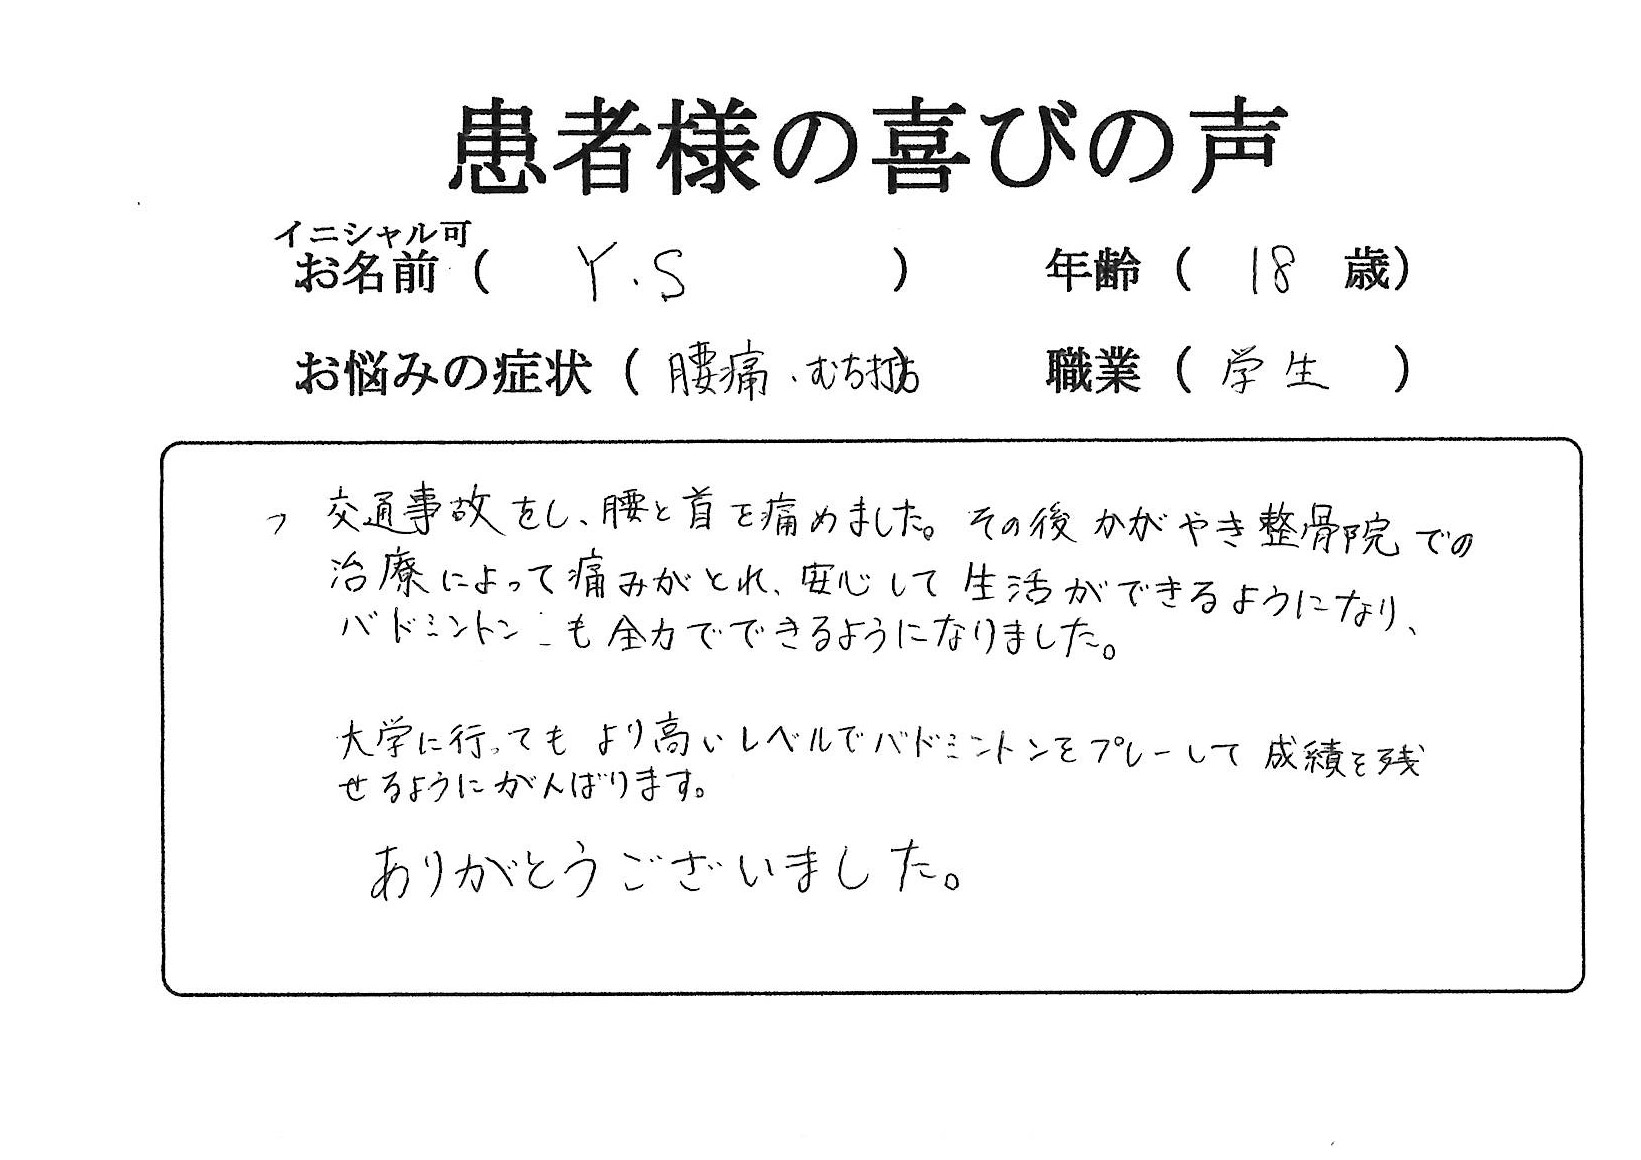 患者様の喜びの声
イニシャル可
お名前 ( Y.S ) 年齢 ( 18 歳)
お悩みの症状 ( 腰痛、むち打ち ) 職業 ( 学生 )
交通事故をし、腰と首を痛めました。その後かがやき整骨院での
治療によって痛みがとれ、安心して生活ができるようになり、
バドミントンも全力でできるようになりました。
大学に行ってもより高いレベルでバドミントンをプレーして成績を残
せるようにがんばります。
ありがとうございました。